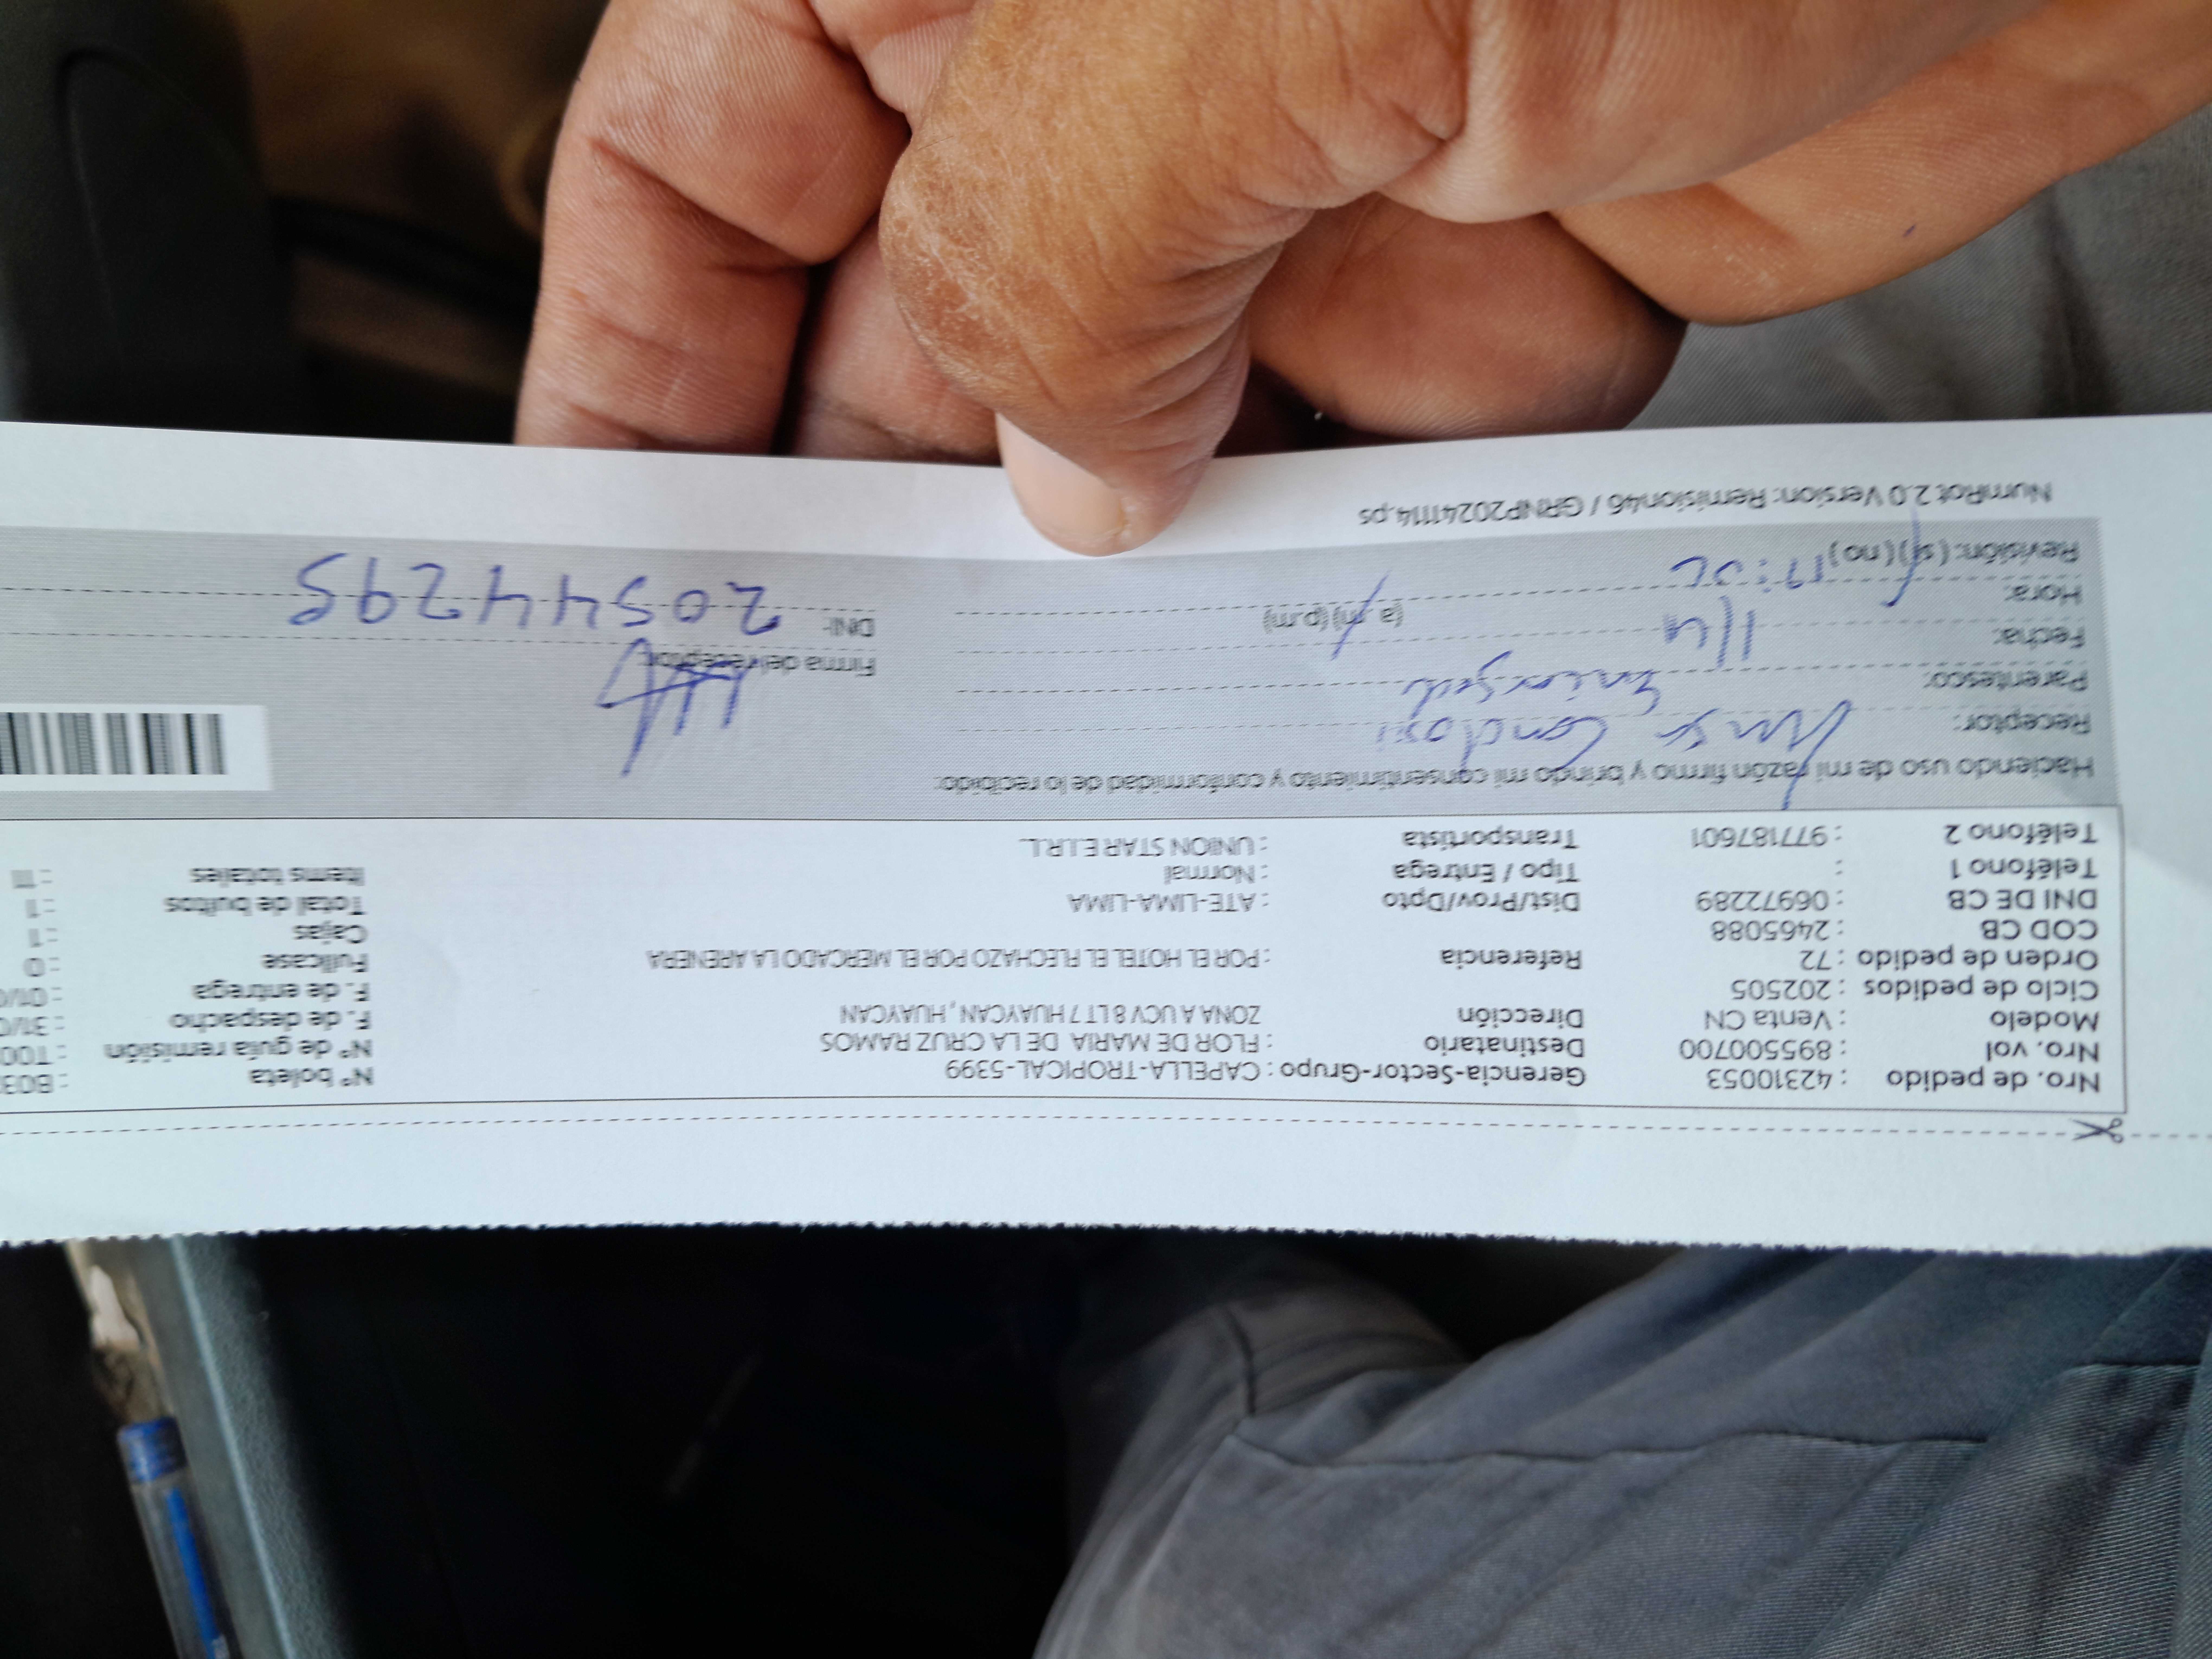 Nro. de pedido : 42310053 Gerencia-Sector-Grupo : CAPELLA-TROPICAL-5399 N° boleta : B03
Nro. vol : 895500700 Destinatario : FLOR DE MARIA DE LA CRUZ RAMOS N° de guía remisión : T00
Modelo : Venta CN Dirección ZONA A UCV 8 LT 7 HUAYCAN, HUAYCAN F. de despacho : 31/0
Ciclo de pedidos : 202505 F. de entrega : 01/0
Orden de pedido : 72 Referencia : POR EL HOTEL EL FLECHAZO POR EL MERCADO LA ARENERA Fullcase : 0
COD CB : 2465088 Cajas : 1
DNI DE CB : 06972289 Dist/Prov/Dpto : ATE-LIMA-LIMA Total de bultos : 1
Teléfono 1 : Tipo / Entrega : Normal Items totales : 11
Teléfono 2 : 977187601 Transportista : UNION STAR E.I.R.L.
Haciendo uso de mi razón firmo y brindo mi consentimiento y conformidad de lo recibido:
Receptor:
Parentesco: Firma del receptor:
Fecha: 1/4
Hora: (a.m) (p.m) DNI: 20544298
Revisión: (si) (no)
NumRot 2.0 Version: Remision46 / GRNP20241114.ps